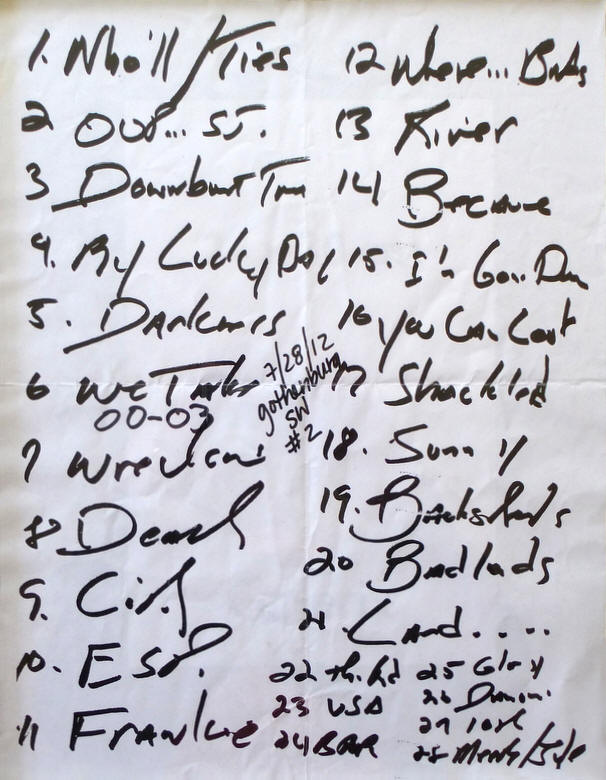 1. Who'll / Ties
2 OUR... SJ.
3 Downbound Trn
4. My Lucky Day
5. Darkness
6 We Take
00-03
7 Wreckin
8 Death
9. City
10. E ST.
11 Frankie
7/28/12
gothenburg
SW
#2
12 Where... Bnds
13 River
14 Because
15. I'm Goin Dwn
16 You Can Look
17 Shackled
18. Sunny
19. Backstreets
20 Badlands
21 Land....
22 th. Rd
23 USA
24 BOR
25 Glory
26
27 10th
28